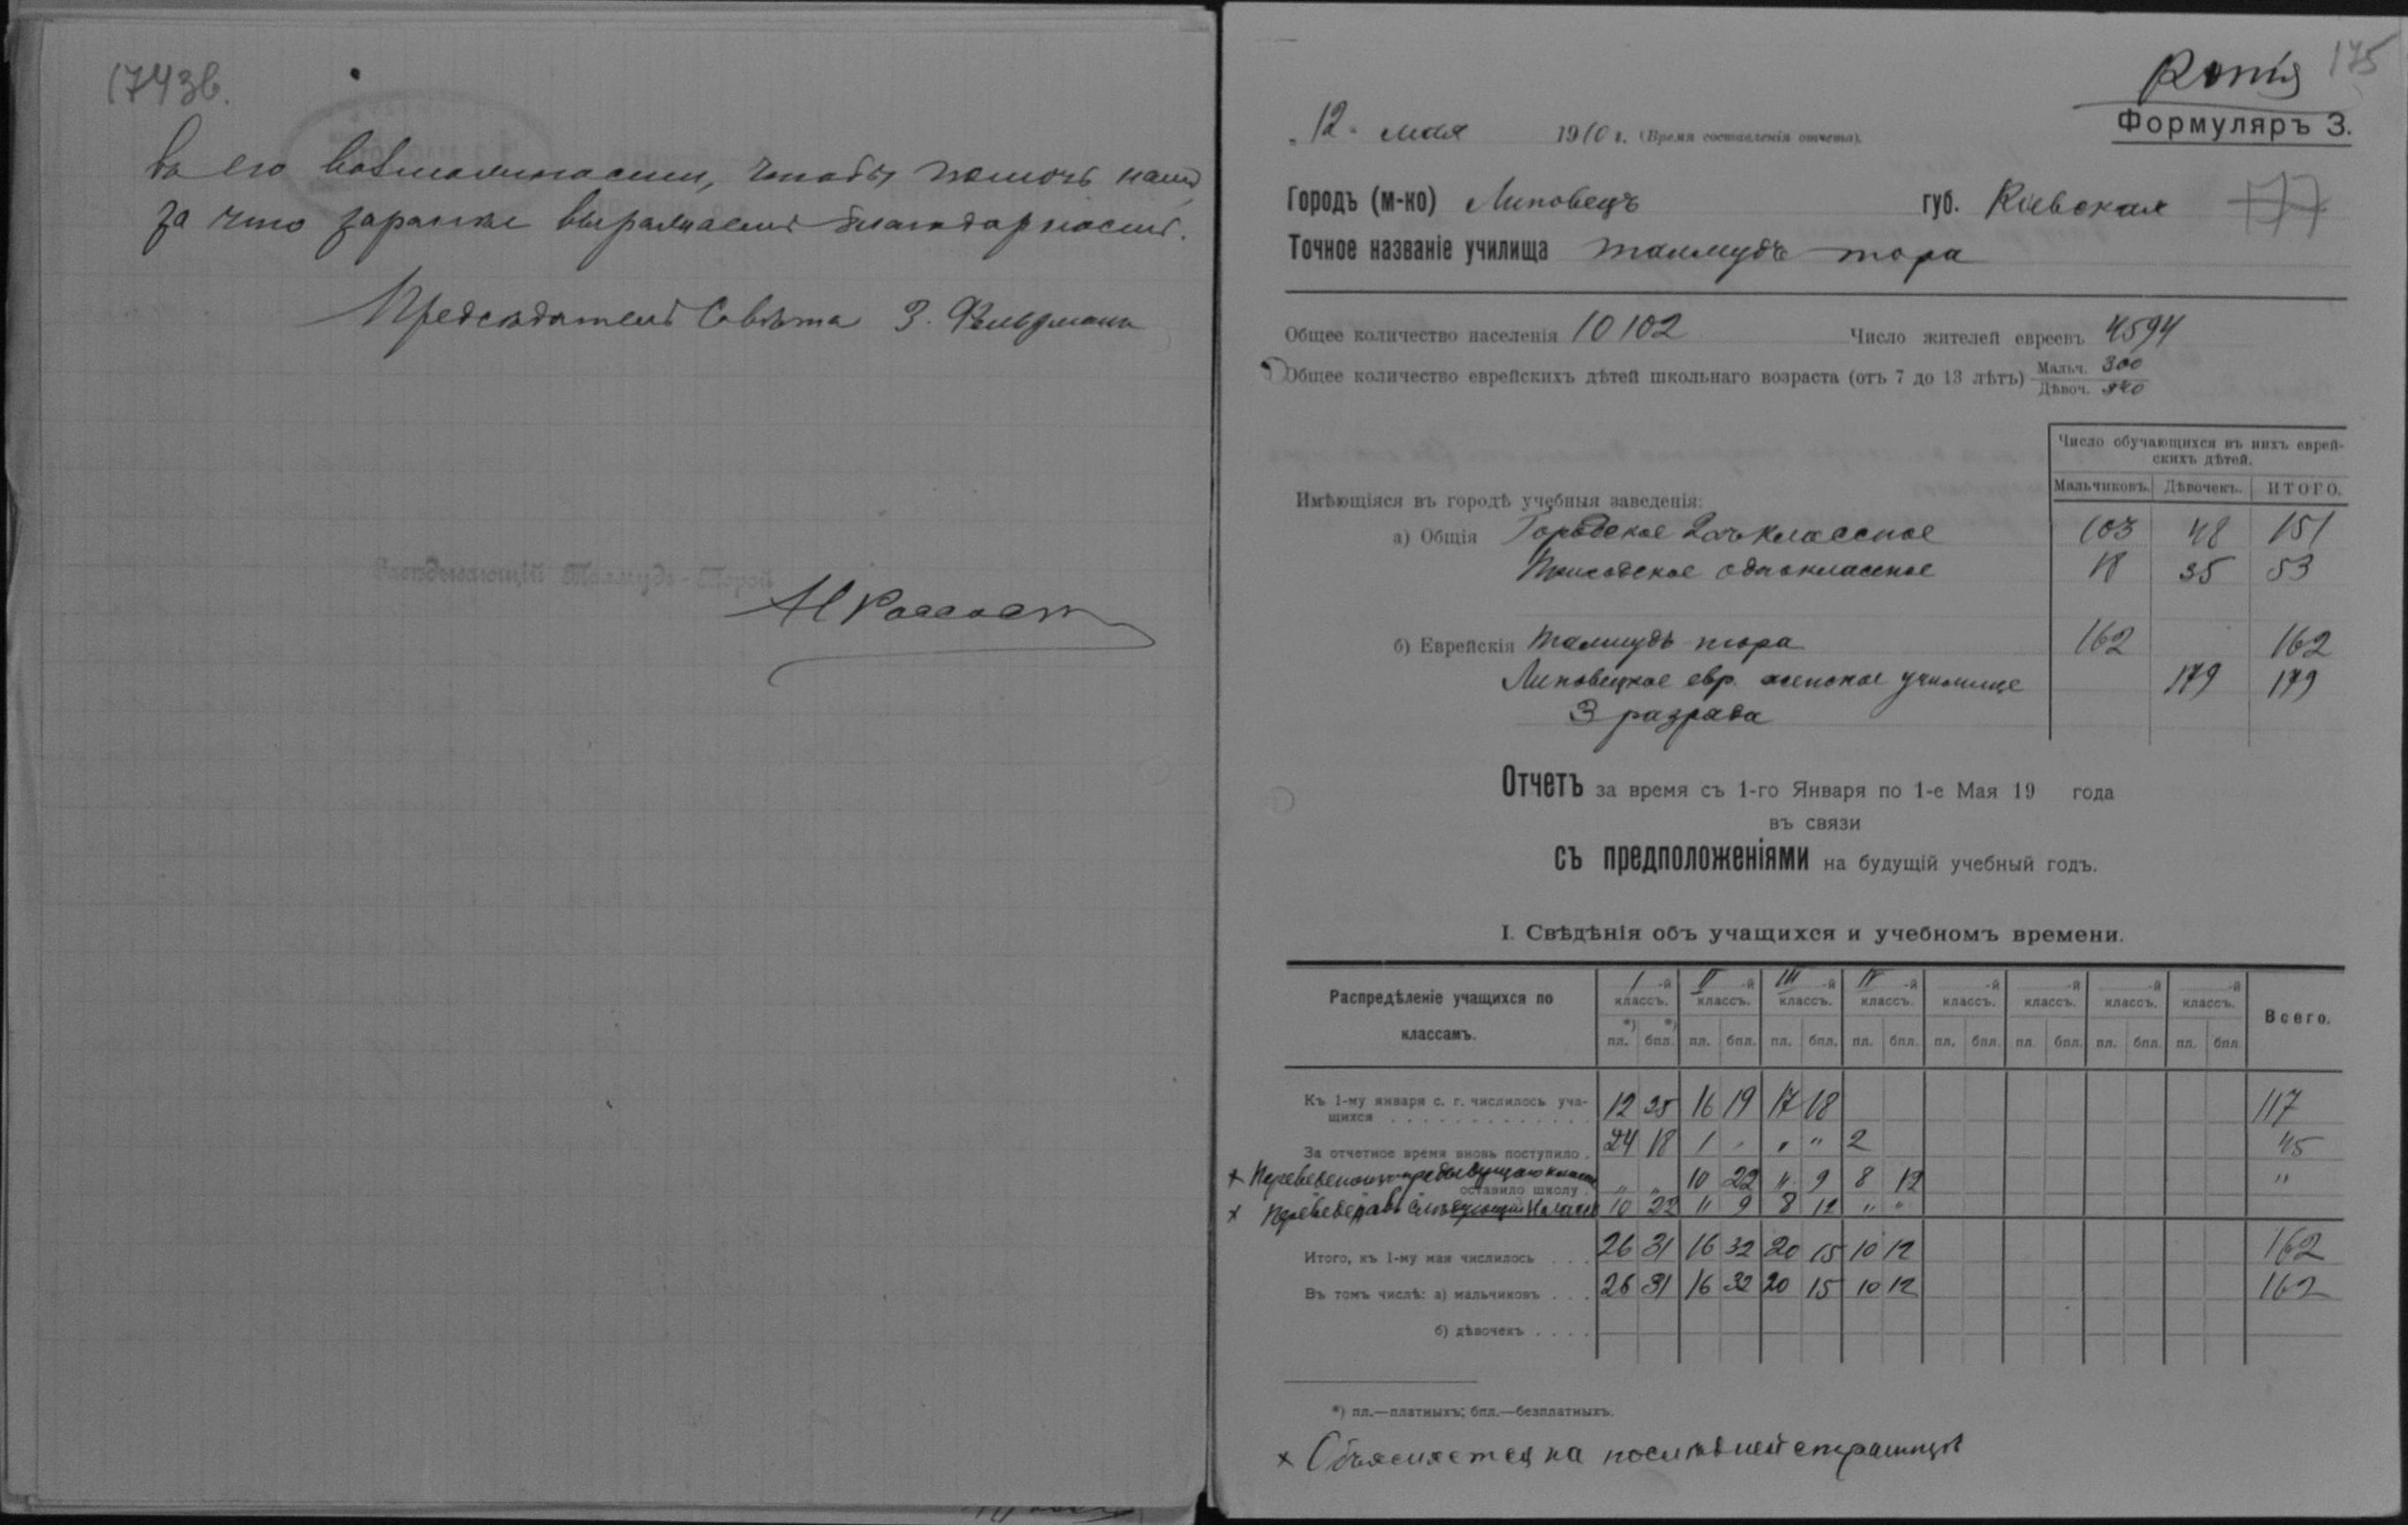 174зв.
въ его возможности, чтобы помочь намъ
за что заранѣе выражаемъ благодарность.
Предсѣдатель Совѣта З. Фельдманъ
Завѣдывающій Талмудъ-Торой
175
Копія
Формуляръ 3.
„12“ мая 1910 г. (Время составленія отчета).
Городъ (м-ко) Липовецъ губ. Кіевская
Точное названіе училища Талмудъ тора
Общее количество населенія 10102 Число жителей евреевъ 4594
Общее количество еврейскихъ дѣтей школьнаго возраста (отъ 7 до 13 лѣтъ) Мальч. 300
Дѣвоч. 340
Число обучающихся въ нихъ еврей-
скихъ дѣтей.
Мальчиковъ. Дѣвочекъ. ИТОГО.
Имѣющіяся въ городѣ учебныя заведенія:
а) Общія Городское 2хъ классное 103 48 151
Приходское одноклассное 18 35 53
б) Еврейскія Талмудъ тора 162 162
Липовецкое евр. женское училище 179 179
3 разряда
Отчетъ за время съ 1-го Января по 1-е Мая 19 года
въ связи
съ предположеніями на будущій учебный годъ.
I. Свѣдѣнія объ учащихся и учебномъ времени.
Распредѣленіе учащихся по
классамъ.
I -й II -й III -й IV -й -й -й -й -й
классъ. классъ. классъ. классъ. классъ. классъ. классъ. классъ. Всего.
*) *)
пл. бпл. пл. бпл. пл. бпл. пл. бпл. пл. бпл. пл. бпл. пл. бпл. пл. бпл.
Къ 1-му января с. г. числилось уча-
щихся . . . . 12 35 16 19 17 18 117
За отчетное время вновь поступило . 24 18 1 „ „ „ 2 45
× Переведено изъ предыдущаго класса „ „ 10 22 „ 9 8 12 „
оставило школу .
× Переведено въ слѣдующій классъ 10 22 „ 9 8 12 „ „
Итого, къ 1-му мая числилось . . . 26 31 16 32 20 15 10 12 162
Въ томъ числѣ: а) мальчиковъ . . . 26 31 16 32 20 15 10 12 162
б) дѣвочекъ . . . .
*) пл.—платныхъ; бпл.—безплатныхъ.
× Объясняется на послѣдней страницѣ